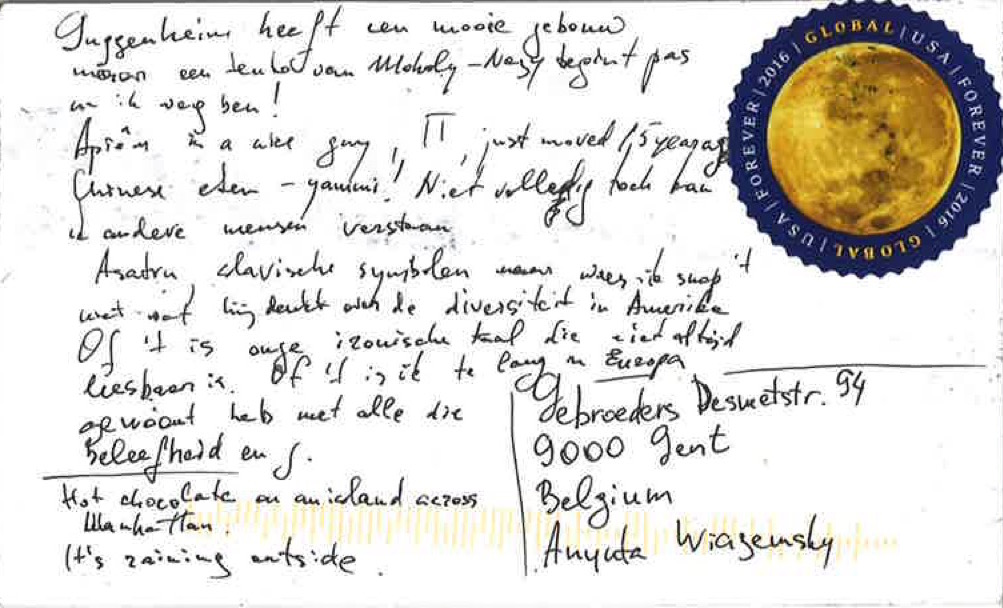 Guggenheim heeft een mooie gebouw
maar een tentot van Moholy-Nagy begint pas
ik weg ben!
is a nice guy, IT, just moved 1,5 year ago
Chinese eten - yammi! Niet volledig toch kan
ik andere mensen verstaan
Asatru, slavische symbolen maar wees ik snap 't
niet wat hij denkt over de diversiteit in Amerika
Of 't is onze ironische taal die niet altijd
leesbaar is. Of 't is ik te lang in Europa
gewoont heb met alle die
beleefheid en
Hot chocolate on an island across
Manhattan.
It's raining outside.
Gebroeders Desmetstr. 94
9000 Gent
Belgium
Anyuta Wiazemsky
GLOBAL | USA | FOREVER | 2016 | GLOBAL | USA | FOREVER | 2016